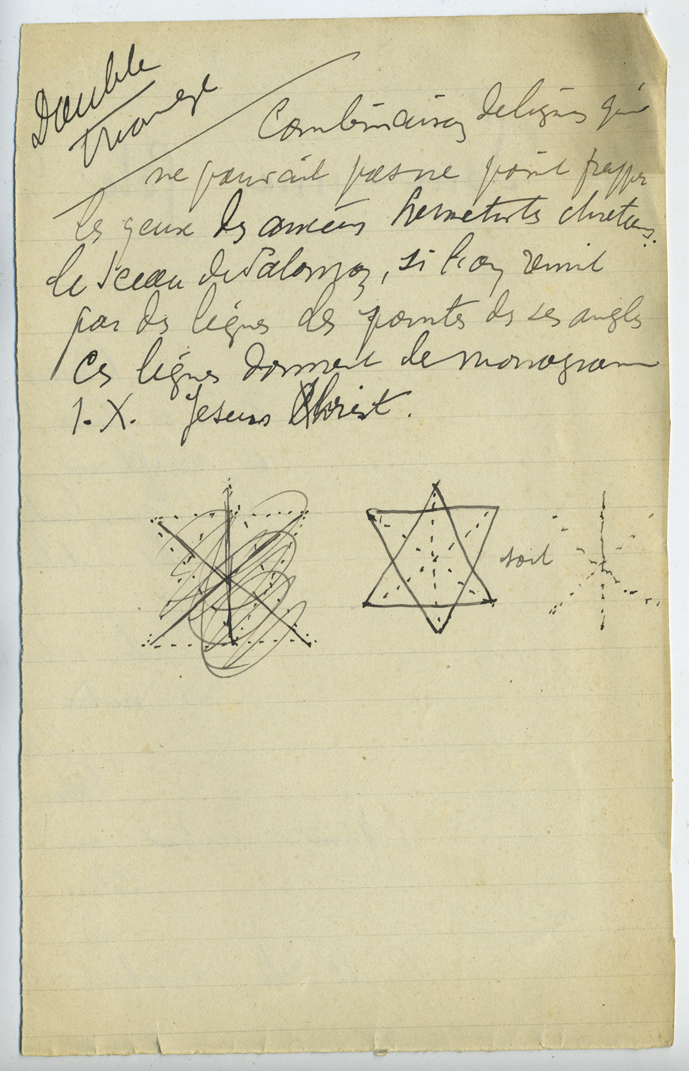 Double
triangle
Combinaison de lignes qui
ne pouvait pas ne point frapper
les yeux des anciens hermetistes chretiens.
le Sceau de Salomon, si l'on reunit
par des lignes les pointes de ses angles
ces lignes donnent le monogramme
I. X. Jesus Christ.
soit